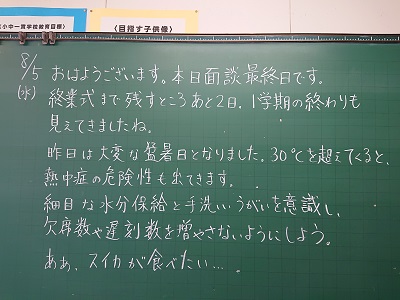 小中一貫学校教育目標〉
〈目指す子供像〉
8/5 おはようございます。本日面談最終日です。
(水) 終業式まで残すところあと2日。1学期の終わりも
見えてきましたね。
昨日は大変な猛暑日となりました。30℃を超えてくると、
熱中症の危険性も出てきます。
細目な水分保給と手洗いうがいを意識し、
欠席数や遅刻数を増やさないようにしよう。
ああ、スイカが食べたい…。